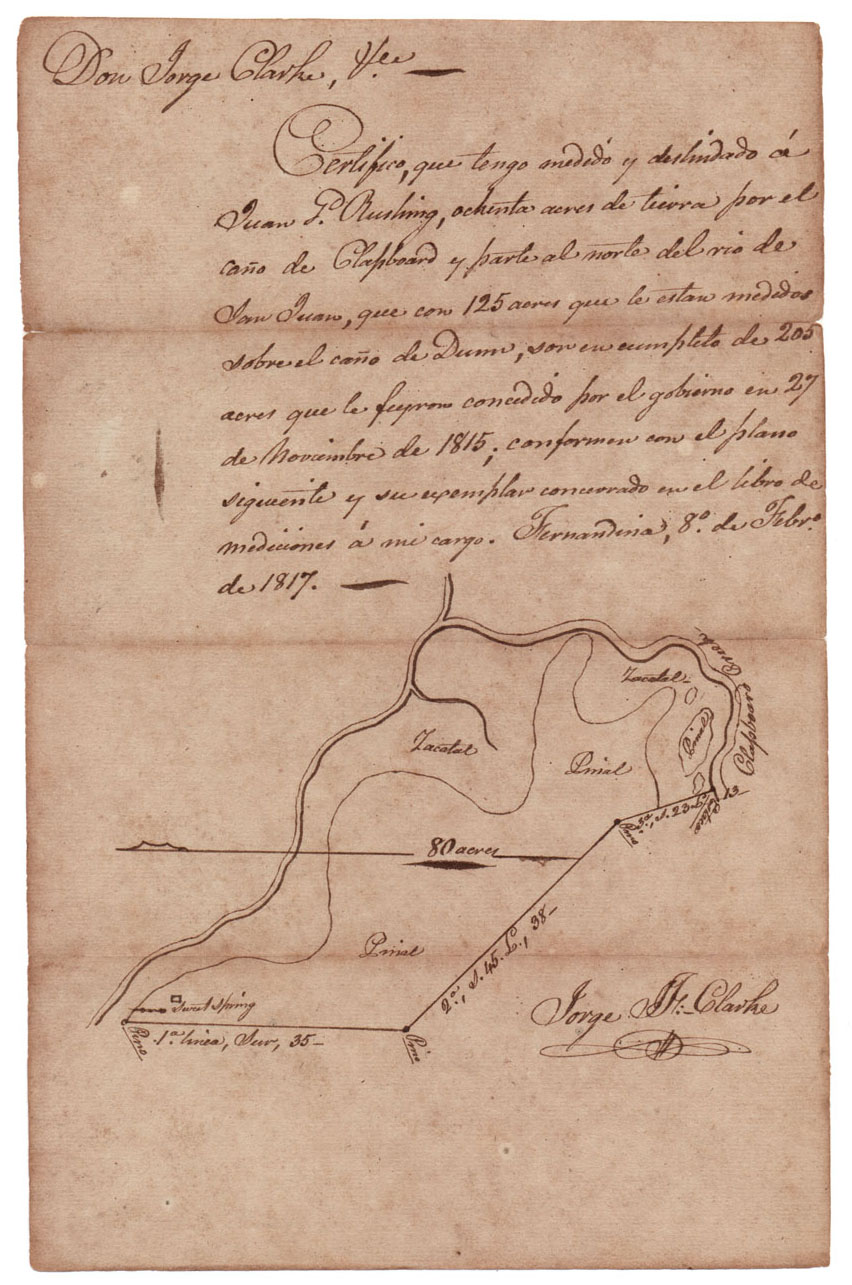 Don Jorge Clarke, &ce
Certifico, que tengo medido y deslindado á
Juan Po. Rushing, ochenta acres de tierra por el
caño de Clapboard y parte al norte del rio de
San Juan, que con 125 acres que le estan medidos
sobre el caño de Dunn, son en cumpleto de 205
acres que le fueron concedido por el gobierno en 27
de Noviembre de 1815; conformen con el plano
siguiente y su exemplar concervado en el libro de
mediciones á mi cargo. Fernandina, 8o. de Febro.
de 1817.
Clapboard Creek
Zacatal
Pinal
Zacatal
Pinal
13
3a., S. 23 L.
Pino
80 acres
2a., S. 45. L., 38
Pinal
Sweet Spring
Pino
1a. linea, Sur, 35
Pino
Jorge J. F. Clarke